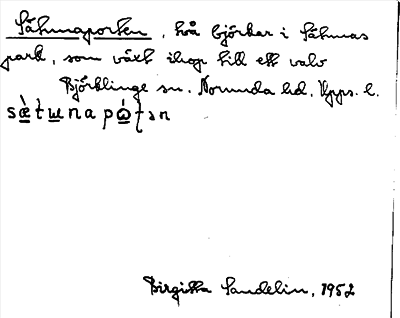 Sätunaporten, två björkar i Sätunas
park, som växt ihop till ett valv
Björklinge sn. Norunda hd. Upps. l.
Birgitta Sandelin, 1952